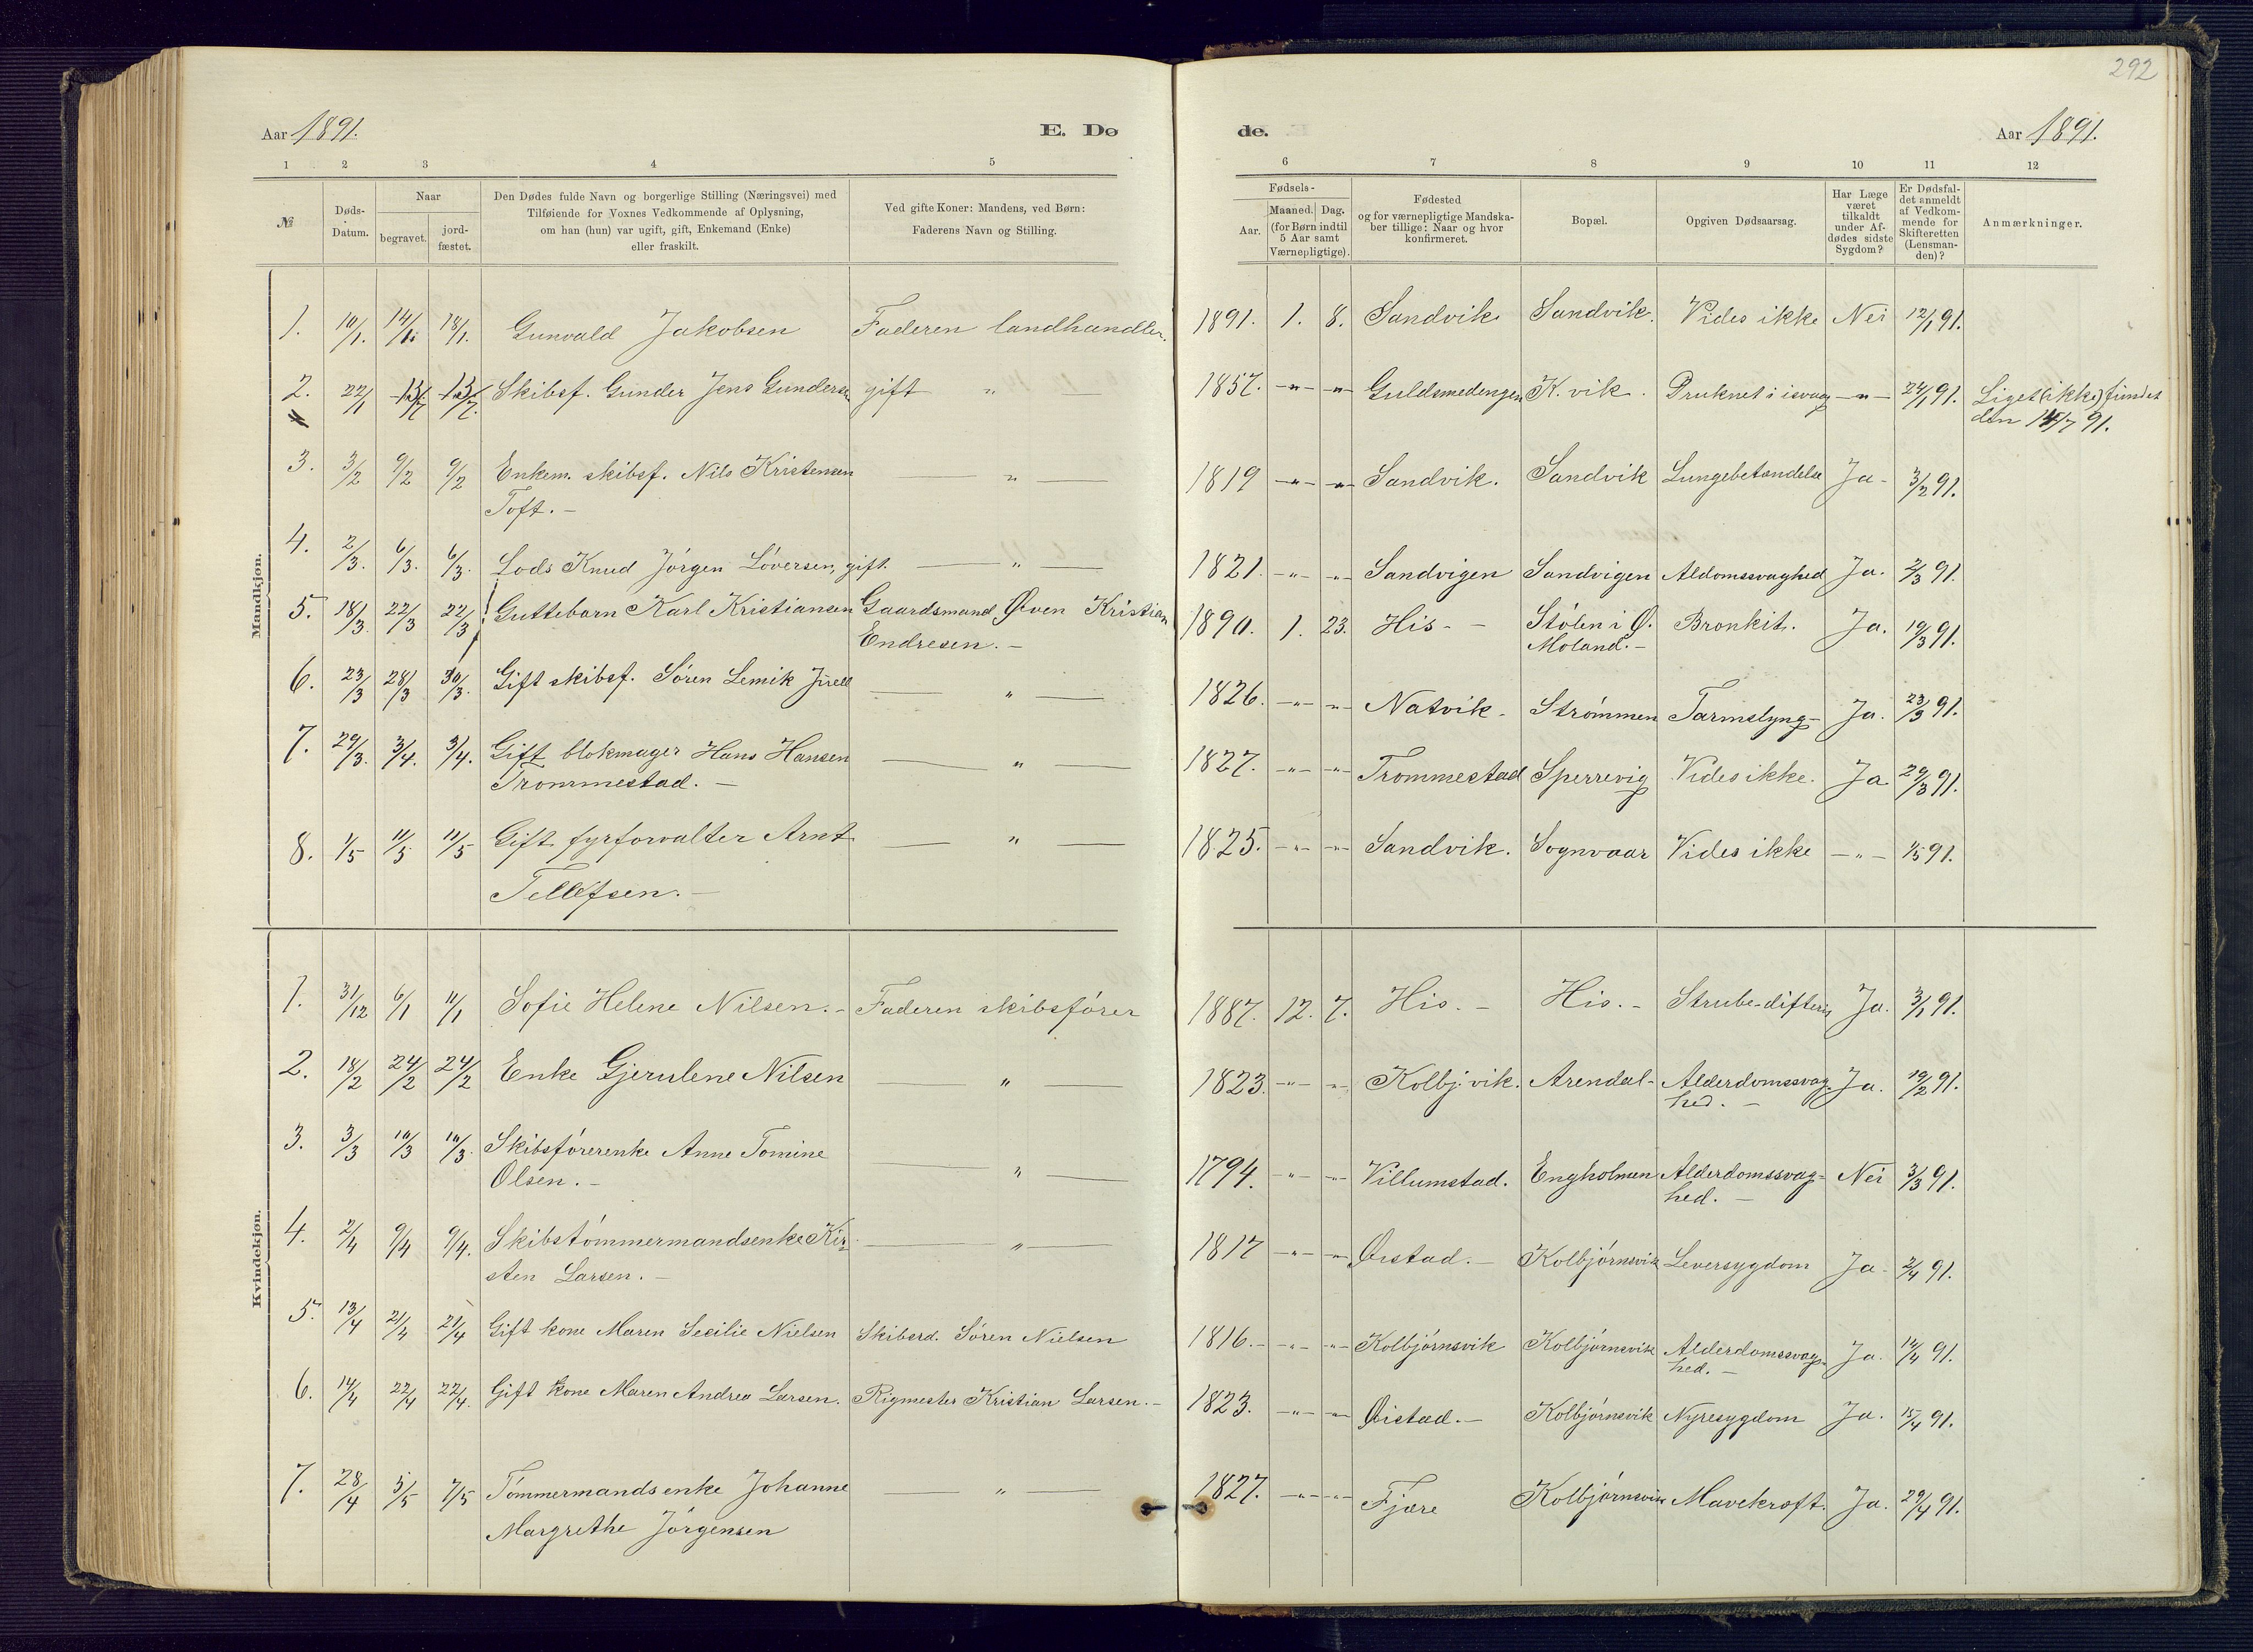 292
Aar 1891. E. Dø de. Aar 1891.
1 2 3 4 5 6 7 8 9 10 11 12
№
Døds-Datum.
Naar
begravet.
jord-fæstet.
Den Dødes fulde Navn og borgerlige Stilling (Næringsvei) med
Tilføiende for Voxnes Vedkommende af Oplysning,
om han (hun) var ugift, gift, Enkemand (Enke)
eller fraskilt.
Ved gifte Koner: Mandens, ved Børn:
Faderens Navn og Stilling.
Fødsels-
Aar.
Maaned. Dag.
(for Børn indtil
5 Aar samt
Værnepligtige).
Fødested
og for værnepligtige Mandska-
ber tillige: Naar og hvor
konfirmeret.
Bopæl.
Opgiven Dødsaarsag.
Har Læge
været
tilkaldt
under Af-
dødes sidste
Sygdom?
Er Dødsfal-
det anmeldt
af Vedkom-
mende for
Skifteretten
(Lensman-
den)?
Anmærkninger.
Mandkjøn.
1. 10/1. 14/1 18/1. Gunvald Jakobsen Faderen landhandler. 1891. 1. 8. Sandvik Sandvik. Vides ikke Nei 12/1 91.
2. 22/1 13/7 13/7. Skibsf. Gunder Jens Gundersen gift " — 1857. -"- -"- Guldsmedengen K.vik. Druknet i isvaag -"- 24/1 91. Liget (ikke) fundet
den 14/7 91.
3. 3/2 9/2 9/2 Enkem. skibsf. Nils Kristensen — " — 1819 -"- -"- Sandvik. Sandvik Lungebetændelse Ja- 3/2 91.
Toft. -
4. 2/3. 6/3. 6/3. Lods Knud Jörgen Löversen, gift. — " — 1821. -"- -"- Sandvigen Sandvigen Aldomssvaghed Ja. 2/3 91.
5. 18/3. 22/3 22/3 Guttebarn Karl Kristiansen Gaardsmand Öven Kristian 1890. 1. 23. His- - Stölen i Ø. Bronkit. Ja. 19/3 91.
Endresen. - Moland. -
6. 23/3 28/3 30/3. Gift skibsf. Sören Lemik Jürell — " — 1826. -"- -"- Natvik- Strömmen Tarmslyng- Ja. 23/3 91.
7. 29/3. 3/4. 3/4. Gift blokmager Hans Hansen — " — 1827. -"- -"- Trommestad Sperrevig Vides ikke. Ja 29/3 91.
Trommestad. -
8. 1/5 11/5 11/5 Gift fyrforvalter Arnt — " — 1825. -"- -"- Sandvik. Sognvaar Vides ikke -"- 1/5 91.
Tellefsen. -
Kvindekjøn.
1. 31/12 6/1 11/1 Sofie Helene Nilsen. - Faderen skibsförer 1887. 12. 7. His. - His. - Strube-difteri Ja. 3/1 91.
2. 18/2 24/2 24/2 Enke Gjerulene Nilsen — " — 1823. -"- -"- Kolbj.vik. Arendal- Alderdomssvag- Ja. 19/2 91.
hed. -
3. 3/3 10/3 10/3. Skibsförerenke Anne Tomine — " — 1794. -"- -"- Villumstad. Engholmen Alderdomssvag= Nei 3/3 91.
Olsen. - hed. -
4. 2/4 9/4 9/4. Skibstömmermandsenke Kir- — " — 1817 -"- -"- Öistad. - Kolbjörnsvik Leversygdom Ja- 2/4 91.
sten Larsen. -
5. 13/4 21/4 21/4 Gift kone Maren Secilie Nielsen Skibsrd. Sören Nielsen 1816. - -"- -"- Kolbjörnsvik Kolbjörnsvik Alderdomssvag- Ja. 14/4 91.
hed. -
6. 14/4 22/4 22/4. Gift kone Maren Andrea Larsen. Rigmester Kristian Larsen. - 1823. -"- -"- Öistad. - Kolbjörnsvik Nyresygdom Ja. 15/4 91.
7. 28/4 5/5 7/5 Tömmermandsenke Johanne — " — 1827. -"- -"- Fjære Kolbjörnsvik Mavekræft. Ja. 29/4 91.
Margrethe Jörgensen